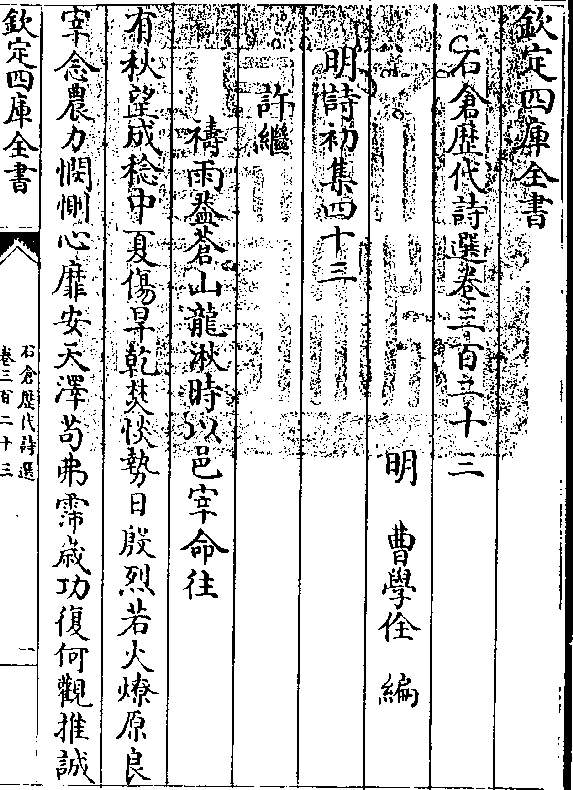 欽定四庫全書
石倉歴代詩選卷三百二十三
明 曹學佺 編
明詩初集四十三
許繼
禱雨盤蒼山龍湫時以邑宰命往
有秋望成稔中夏傷旱乾焚惔勢日殷烈若火燎原良
宰念農力憫惻心靡安天澤苟弗霈嵗功復何觀推誠
欽定四庫全書
石倉歴代詩選
卷三百二十三
一